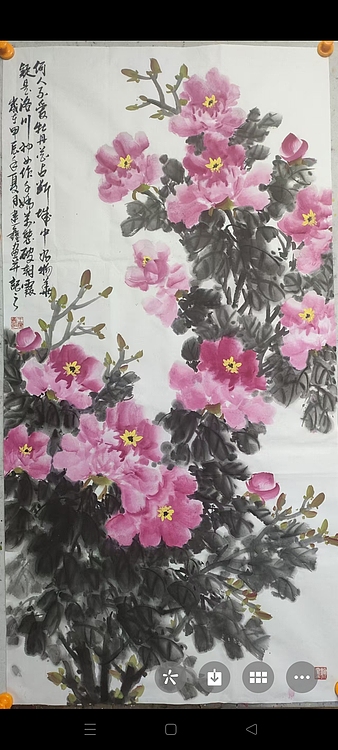 何人不爱牡丹花占断城中好物華
疑是洛川神女作千娇萬态破朝霞
甲辰年夏月